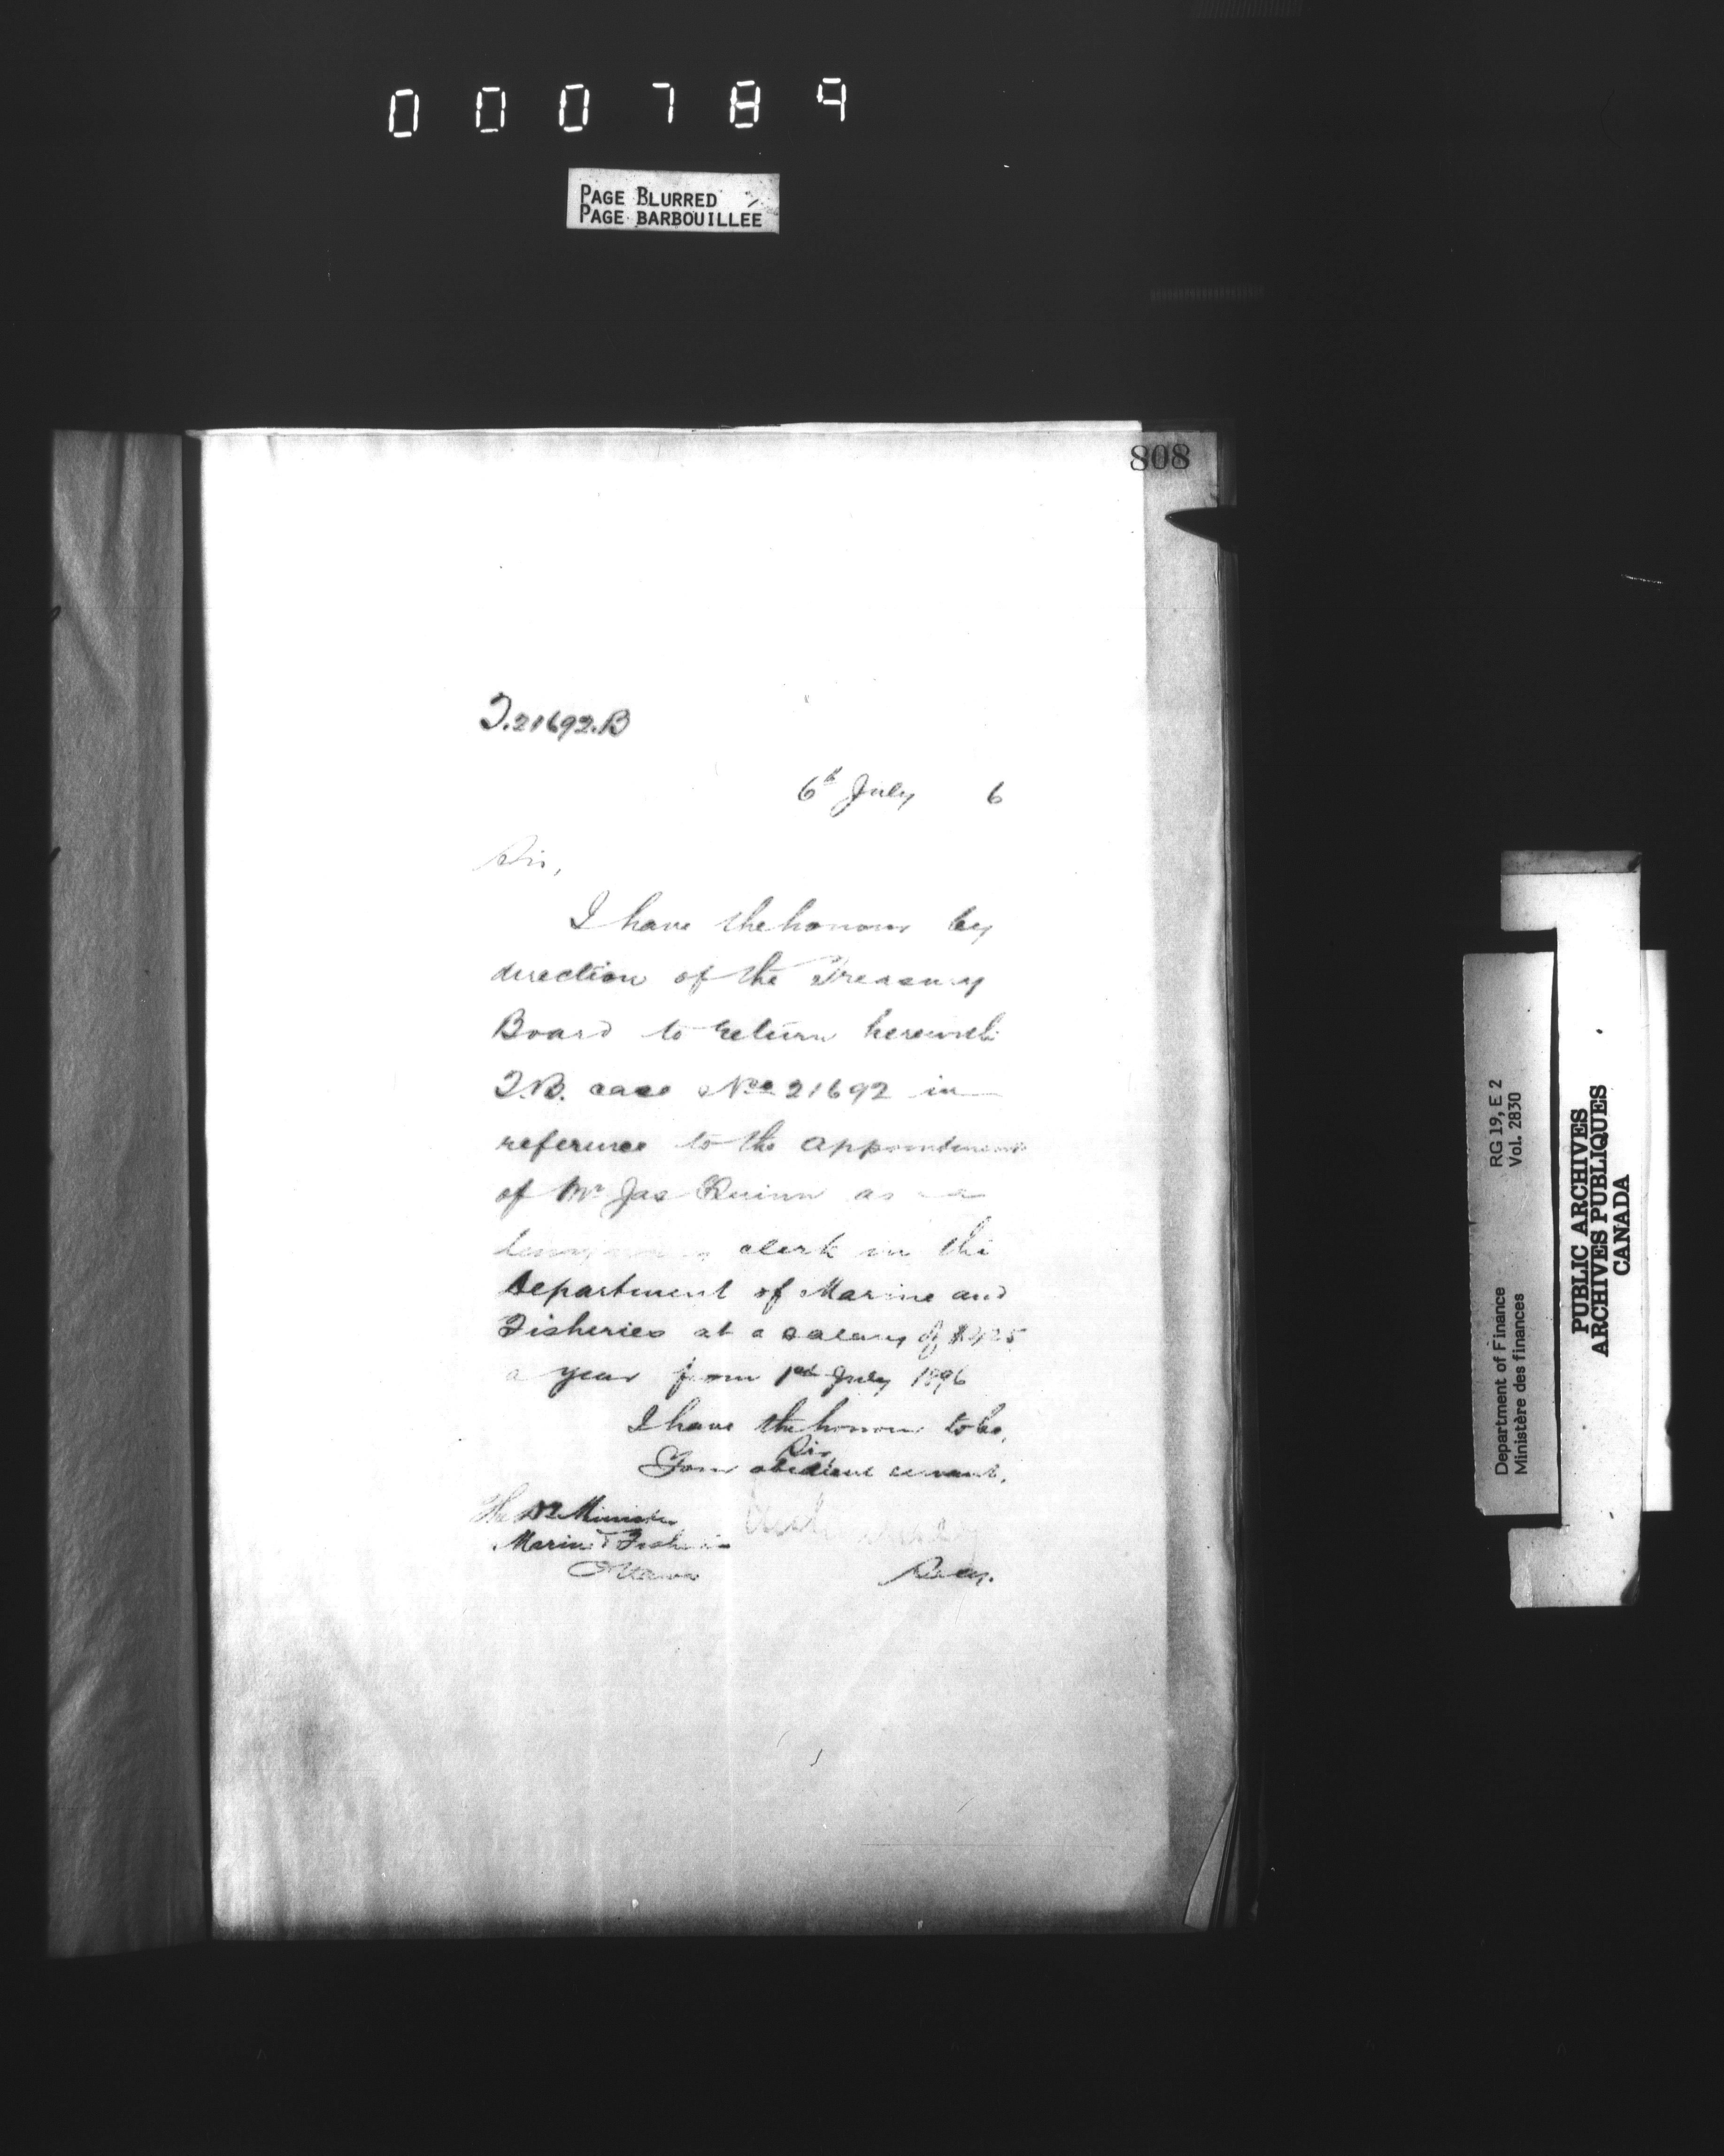 000789
PAGE BLURRED
PAGE BARBOUILLEE
808
T.21692.B
6th July 6
Sir,
I have the honour by
direction of the Treasury
Board to return herewith
T.B. case No 21692 in
reference to the appointment
of Mr Jas Quinn as a
clerk in the
Department of Marine and
Fisheries at a salary of $425
a year from 1st July 1896
I have the honour to be,
Sir,
Your obedient servant,
The Dy Minister
Marine & Fisheries
Ottawa
Secy.
Department of Finance RG 19, E 2
Ministère des finances Vol. 2830
PUBLIC ARCHIVES
ARCHIVES PUBLIQUES
CANADA